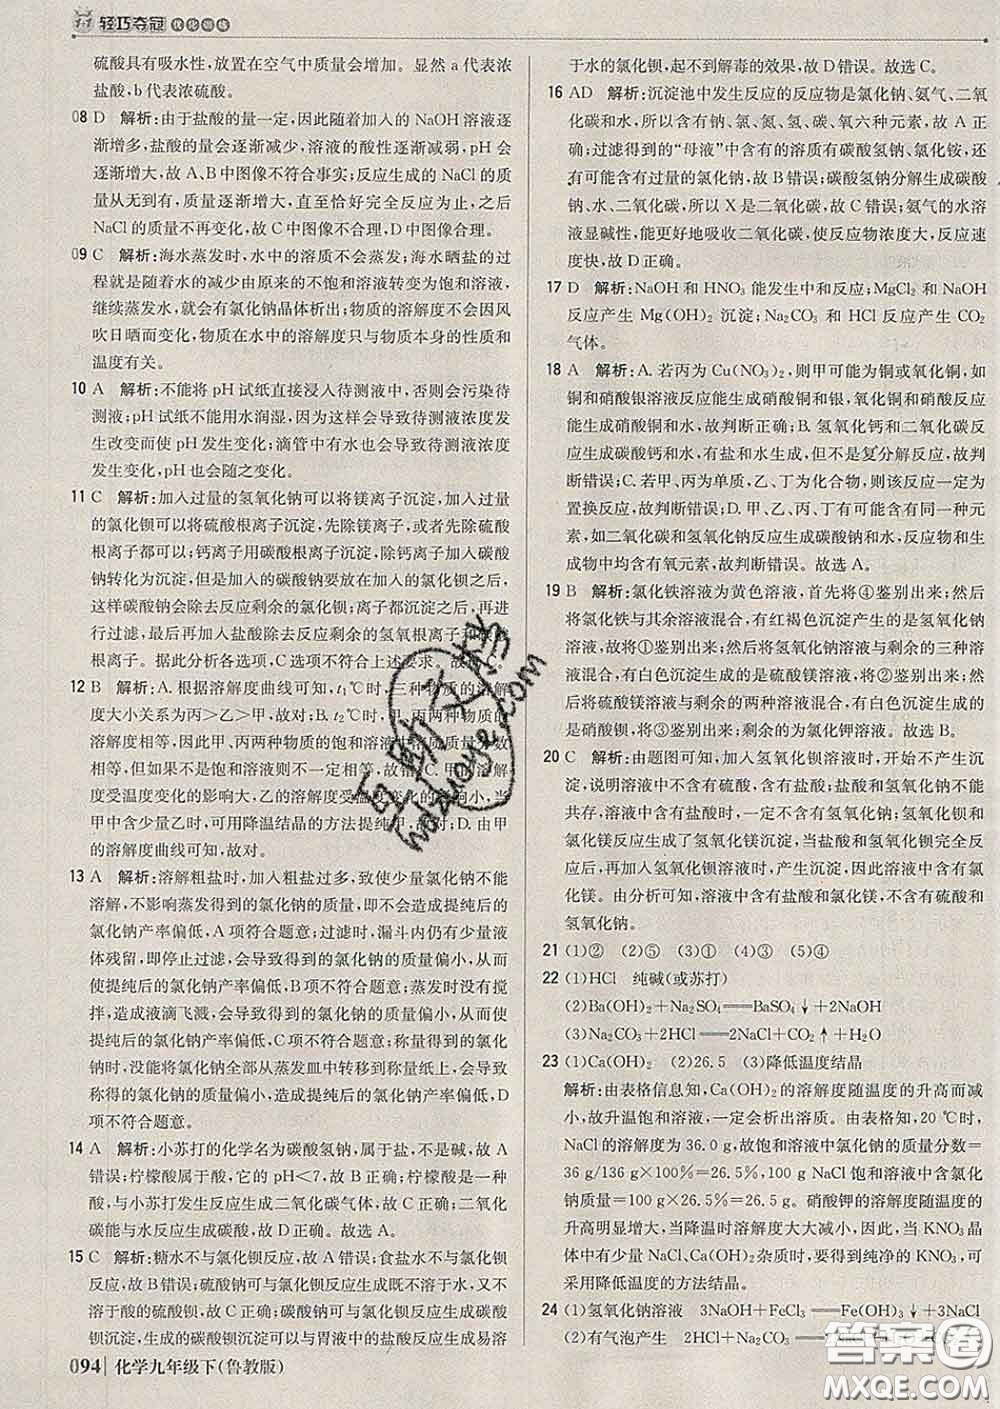 1+1 轻巧夺冠 优化训练
硫酸具有吸水性,放置在空气中质量会增加。显然 a 代表浓
盐酸,b 代表浓硫酸。
08 D 解析:由于盐酸的量一定,因此随着加入的 NaOH 溶液逐
渐增多,盐酸的量会逐渐减少,溶液的酸性逐渐减弱,pH 会
逐渐增大,故 A、B 中图像不符合事实;反应生成的 NaCl 的
质量逐渐增大,直至恰好完全反应为止,之后
NaCl 的质量不再变化,故 C 中图像不合理,D 中图像合理。
09 C 解析:海水蒸发时,水中的溶质不会蒸发;海水晒盐的过
程中随着水的减少由原来的不饱和溶液转变为饱和溶液,
继续蒸发水,就会有氯化钠晶体析出;物质的溶解度不会因风
吹日晒而变化,物质在水中的溶解度只与物质本身的性质和
温度有关。
10 A 解析:不能将 pH 试纸直接浸入待测液中,否则会污染待
测液;pH 试纸不能用水润湿,因为这样会导致待测液浓度发
生改变而使 pH 发生变化;滴管中有水也会导致待测液浓度
发生变化,pH 也会随之变化。
11 C 解析:加入过量的氢氧化钠可以将镁离子沉淀,加入过量
的氯化钡可以将硫酸根离子沉淀,先除镁离子,或者先除硫酸
根离子都可以;钙离子用碳酸根离子沉淀,除钙离子加入碳酸
钠转化为沉淀,但是加入的碳酸钠要放在加入的氯化钡之后,
碳酸钠会除去反应剩余的氯化钡;离子都沉淀之后,再进行
过滤,最后再加入盐酸除去反应剩余的氢氧根离子和碳酸
根离子。据此分析各选项,C 选项不符合上述要求。故选
12 B 解析:A. 根据溶解度曲线可知,t₁℃时,三种物质的溶解
度大小关系为丙>乙>甲,故对;B. t₂℃时,甲、丙两种物质的
溶解度相等,因此甲、丙两种物质的饱和溶液中
故错;C. 甲
度受温度变化的影响大,乙的溶解度受温度变化的影响小,当
甲中含少量乙时,可用降温结晶的方法提纯甲,故对;D. 由甲
的溶解度曲线可知,故对。
13 A 解析:溶解粗盐时,加入粗盐过多,致使少量氯化钠不能
溶解,不影响蒸发得到的氯化钠的质量,即对提纯后的
氯化钠产率偏低,A 项符合题意;过滤时,漏斗内仍有少量液
体残留,即停止过滤,会导致得到的氯化钠的质量偏小,从而
造成提纯后的氯化钠产率偏低,B 项不符合题意;蒸发时没有
搅拌,造成液滴飞溅,会导致得到的氯化钠的质量偏小,造成
提纯后的氯化钠产率偏低,C 项不符合题意;称量得到的氯化
钠时,有少量氯化钠固体从蒸发皿中转移到称量纸上,会导致
称得的氯化钠的质量偏小,造成提纯后的氯化钠产率偏低,D
项不符合题意。
14 A 解析:小苏打的化学名为碳酸氢钠,属于盐,不是碱,故 A
错误;柠檬酸属于酸,它的 pH<7,故 B 正确;柠檬酸是一种
酸,与小苏打发生反应生成二氧化碳气体,故 C 正确;二氧化
碳能与水反应生成碳酸,故 D 正确。故选 A。
15 C 解析:糖水不与氯化钡反应,故 A 错误;食盐水不与氯化钡
反应,故 B 错误;硫酸钠可与氯化钡反应生成既不溶于水,又不溶
于酸的硫酸钡,故 C 正确;碳酸钠可与氯化钡反应生成碳酸
钡沉淀,生成的碳酸钡沉淀可以与胃液中的盐酸反应生成易溶
于水的氯化钡,起不到解毒的效果,故 D 错误。故选 C。
16 AD 解析:沉淀池中发生反应的反应物是氯化钠、氨气、二氧
化碳和水,所以含有钠、氯、氮、氢、碳、氧六种元素,故 A 正
确;过滤得到的“母液”中含有的溶质有碳酸氢钠、氯化铵,还
有可能含有过量的氯化钠,故 B 错误;碳酸氢钠分解生成碳酸
钠、水、二氧化碳,所以 X 是二氧化碳,故 C 错误;氨气的水溶
液显碱性,能更好地吸收二氧化碳,使反应物浓度大,反应速率
快,故 D 正确。
17 D 解析:NaOH 和 HNO₃ 能发生中和反应;MgCl₂ 和 NaOH
反应产生 Mg(OH)₂ 沉淀;Na₂CO₃ 和 HCl 反应产生 CO₂
气体。
18 A 解析:A. 若丙为 Cu(NO₃)₂,则甲可能为铜或氧化铜,如
铜和硝酸银溶液反应能生成硝酸铜和银,氧化铜和硝酸反应
生成硝酸铜和水,故判断正确;B. 氢氧化钙和二氧化碳反
应生成碳酸钙和水,有盐和水生成,但不是复分解反应,故判
断错误;C. 若甲、丙为单质,乙、丁为化合物,则该反应一定为
置换反应,故判断错误;D. 甲、乙、丙、丁中可能均含有同一种元
素,如二氧化碳和氢氧化钠反应生成碳酸钠和水,反应物和生
成物中均含有氧元素,故判断错误。故选 A。
19 B 解析:氯化铁溶液为黄色溶液,首先将④鉴别出来;然后
将氯化铁与其余溶液混合,有红褐色沉淀产生的是氢氧化钠
溶液,故将①鉴别出来;然后将氢氧化钠溶液与剩余的三种溶
液混合,有白色沉淀生成的是硝酸镁溶液,将②鉴别出来;然
后将硫酸镁溶液与剩余的两种溶液混合,有白色沉淀生成的
是硝酸钡,故将⑤鉴别出来;剩余的为氯化钾溶液。故选 B。
20 C 解析:由题图可知,加入氢氧化钡溶液时,开始不产生沉
淀,说明溶液中不含有硫酸,含有盐酸;盐酸和氢氧化钠不能
共存,所以溶液中不含有氢氧化钠
和氯化镁反应生成了氢氧化镁沉淀,当盐酸和氢氧化钡完全反
应后,再加入氢氧化钡溶液时,产生沉淀,因此溶液中含有氯化
镁。由分析可知,溶液中含有盐酸和氯化镁,不含有硫酸和
氢氧化钠。
21 (1)② (2)⑤ (3)① (4)③ (5)④
22 (1)HCl 纯碱(或苏打)
(2)Ba(OH)₂+Na₂SO₄══BaSO₄↓+2NaOH
(3)Na₂CO₃+2HCl══2NaCl+CO₂↑+H₂O
23 (1)Ca(OH)₂ (2)26.5 (3)降低温度结晶
解析:由表格信息知,Ca(OH)₂ 的溶解度随温度的升高而减
小,故升温饱和溶液,一定会析出溶质。由表格知,20 ℃时,
NaCl 的溶解度为 36.0 g,故饱和溶液中氯化钠的质量分数=
36 g/136 g×100%=26.5%,100 g NaCl 饱和溶液中含氯化
钠质量为 100 g×26.5%=26.5 g。硝酸钾的溶解度随温度的
升高明显增大,当降温时溶解度大大减小,因此,当 KNO₃ 晶
体中有少量 NaCl、Ca(OH)₂ 杂质时,要得到纯净的 KNO₃,可
采用降低温度的方法结晶。
24 (1)氢氧化钠溶液 3NaOH+FeCl₃══Fe(OH)₃↓+3NaCl
(2)有气泡产生 2HCl+Na₂CO₃══2NaCl+
094 化学九年级下(鲁教版)
互助文档
hvdzuoye.com
答案圈
MXQE.COM